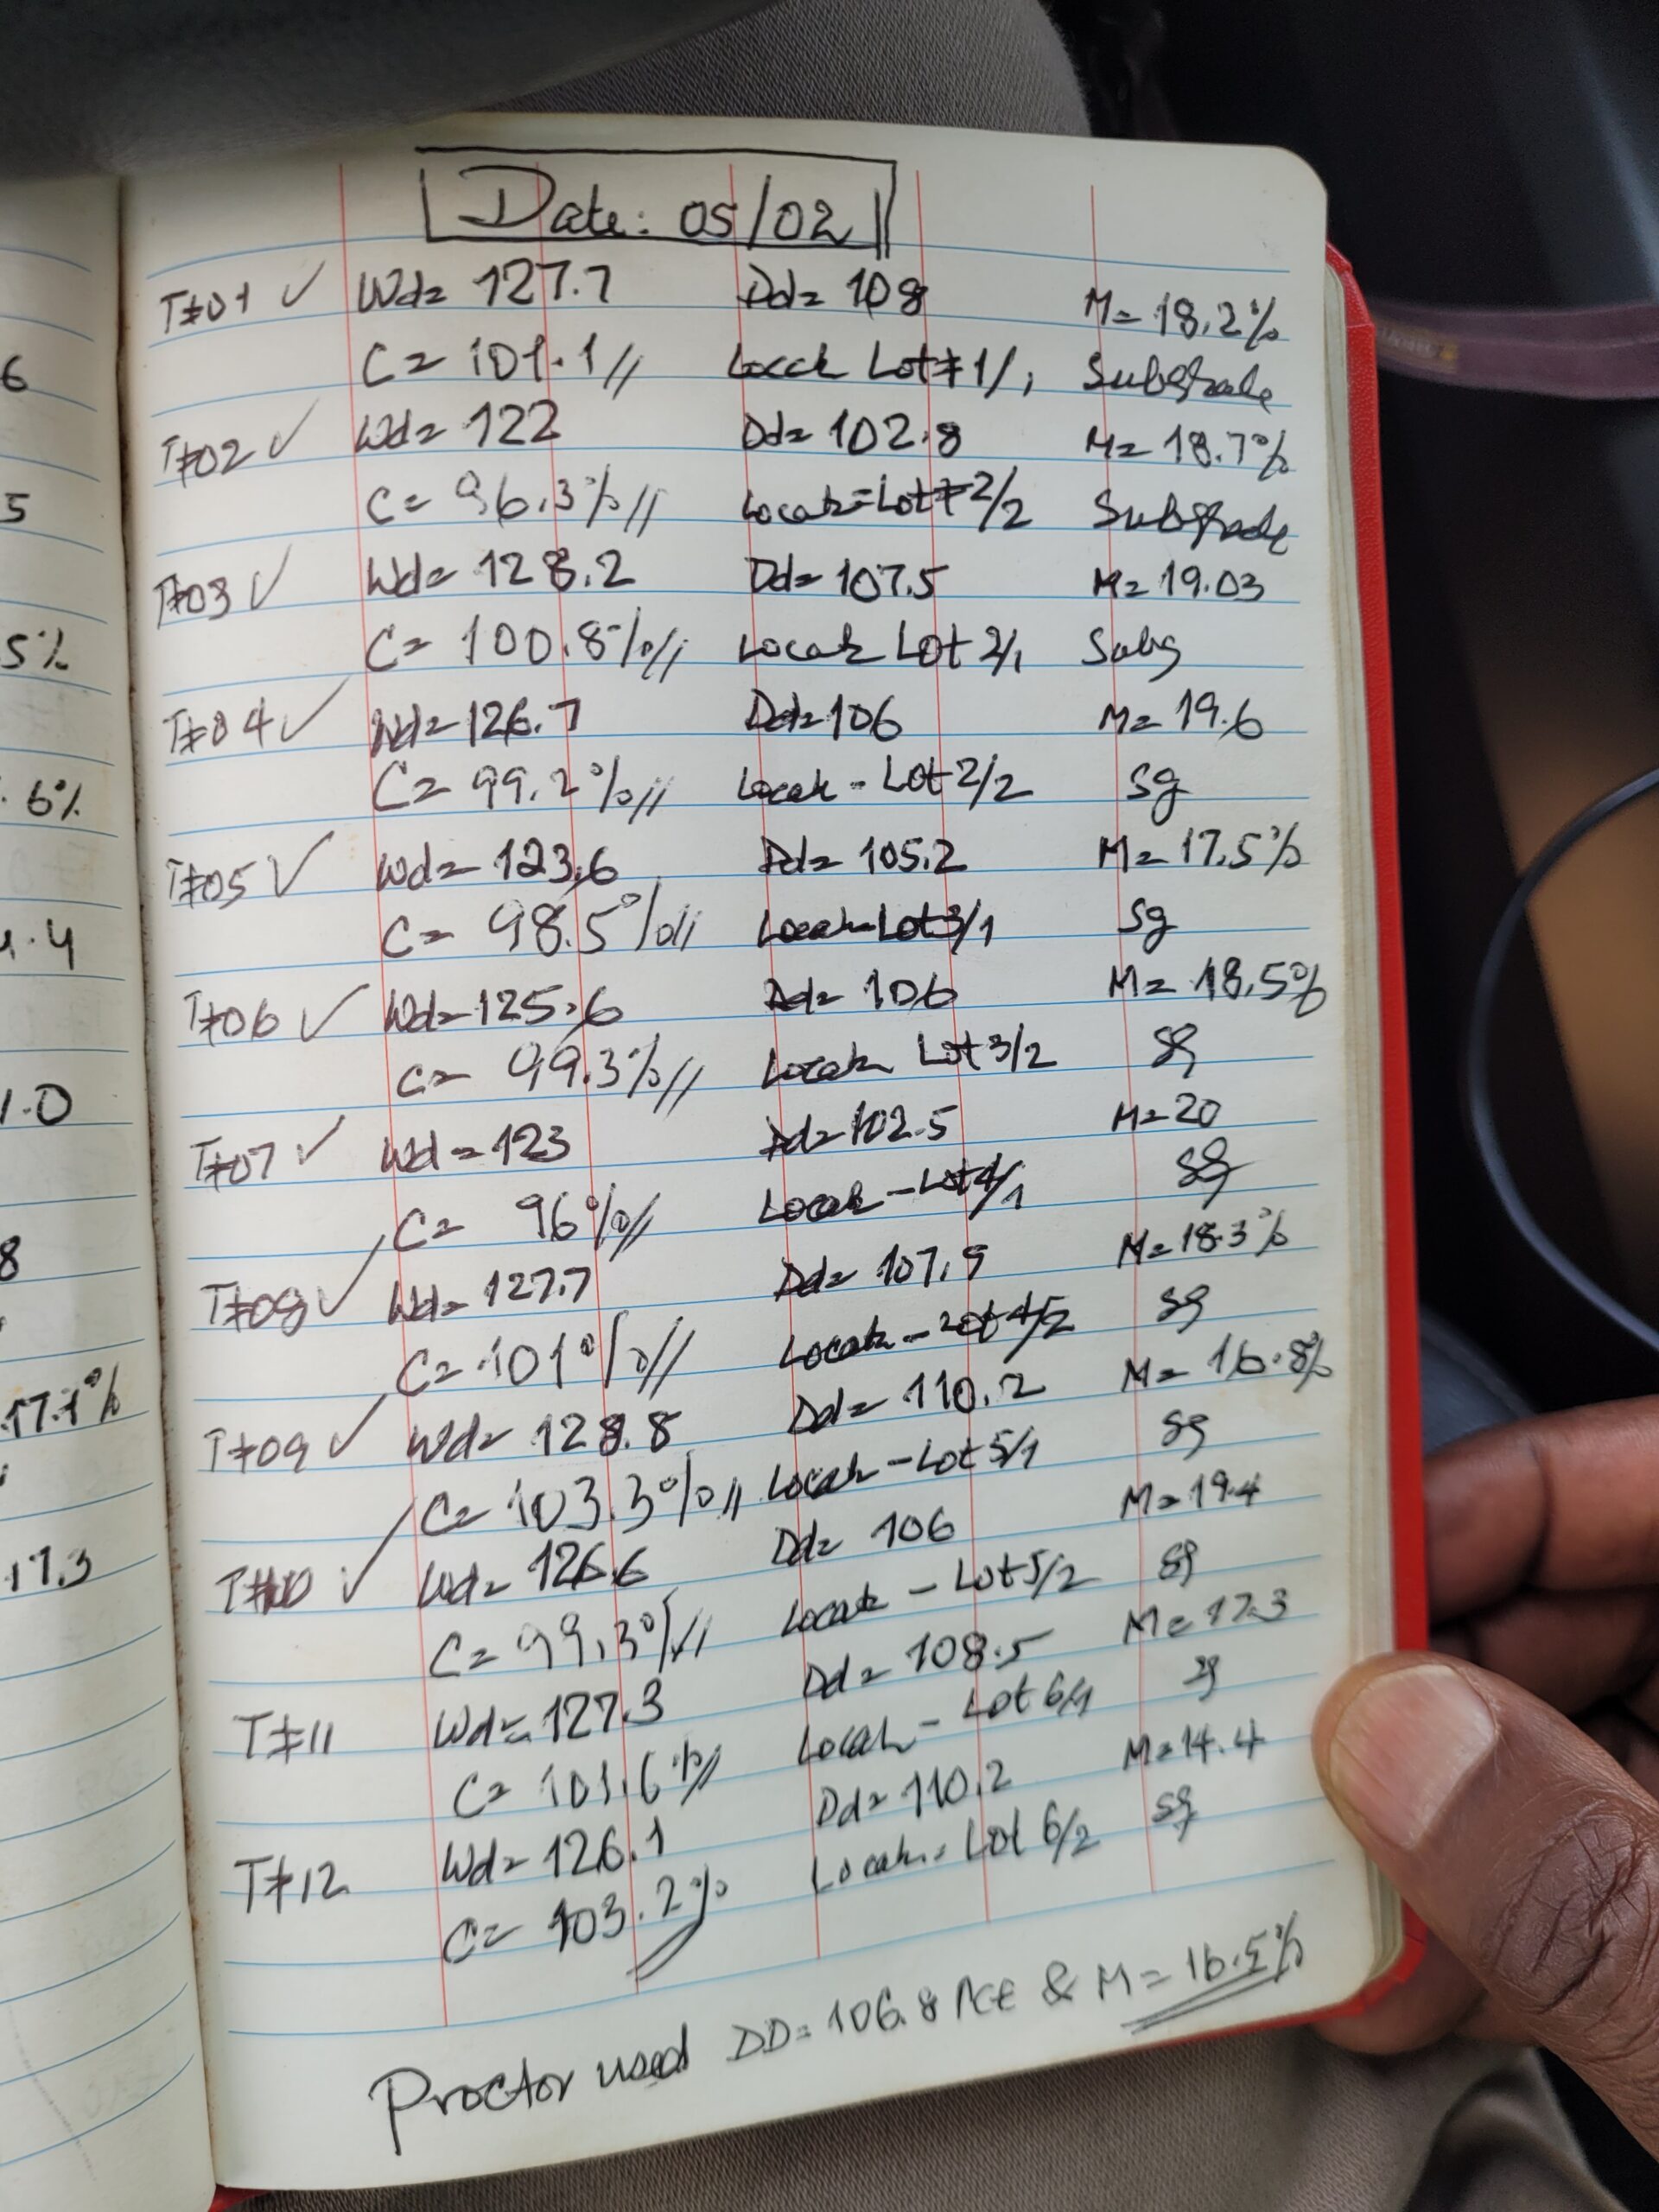 6
5
5%
. 6%
1.4
1.0
8
17.1%
17.3
Date: 05/02
T#01 ✓ Wd= 127.7 Dd= 108 M= 18.2%
C= 101.1// Locat Lot#1/1 Subgrade
T#02 ✓ Wd= 122 Dd= 102.8 M= 18.7%
C= 96.3%// Locat= Lot#2/2 Subgrade
T#03 ✓ Wd= 128.2 Dd= 107.5 M= 19.03
C= 100.8%// Locat Lot 2/1 Subg
T#04 ✓ Wd= 126.7 Dd= 106 M= 19.6
C= 99.2%// Locat - Lot 2/2 Sg
T#05 ✓ Wd= 123.6 Dd= 105.2 M= 17.5%
C= 98.5%// Locat- Lot 3/1 Sg
T#06 ✓ Wd= 125.6 Dd= 106 M= 18.5%
C= 99.3%// Locat Lot 3/2 Sg
T#07 ✓ Wd= 123 Dd= 102.5 M= 20
C= 96%// Locat - Lot 4/1 Sg
T#08 ✓ Wd= 127.7 Dd= 107.9 M= 18.3%
C= 101%// Locat - Lot 4/2 Sg
T#09 ✓ Wd= 128.8 Dd= 110.2 M= 16.8%
C= 103.3%// Locat - Lot 5/1 Sg
T#10 ✓ Wd= 126.6 Dd= 106 M= 19.4
C= 99.3%// Locat - Lot 5/2 Sg
T#11 Wd= 127.3 Dd= 108.5 M= 17.3
C= 101.6%// Locat - Lot 6/1 Sg
T#12 Wd= 126.1 Dd= 110.2 M= 14.4
C= 103.2% Locat. Lot 6/2 Sg
Proctor used DD= 106.8 & M= 16.5%